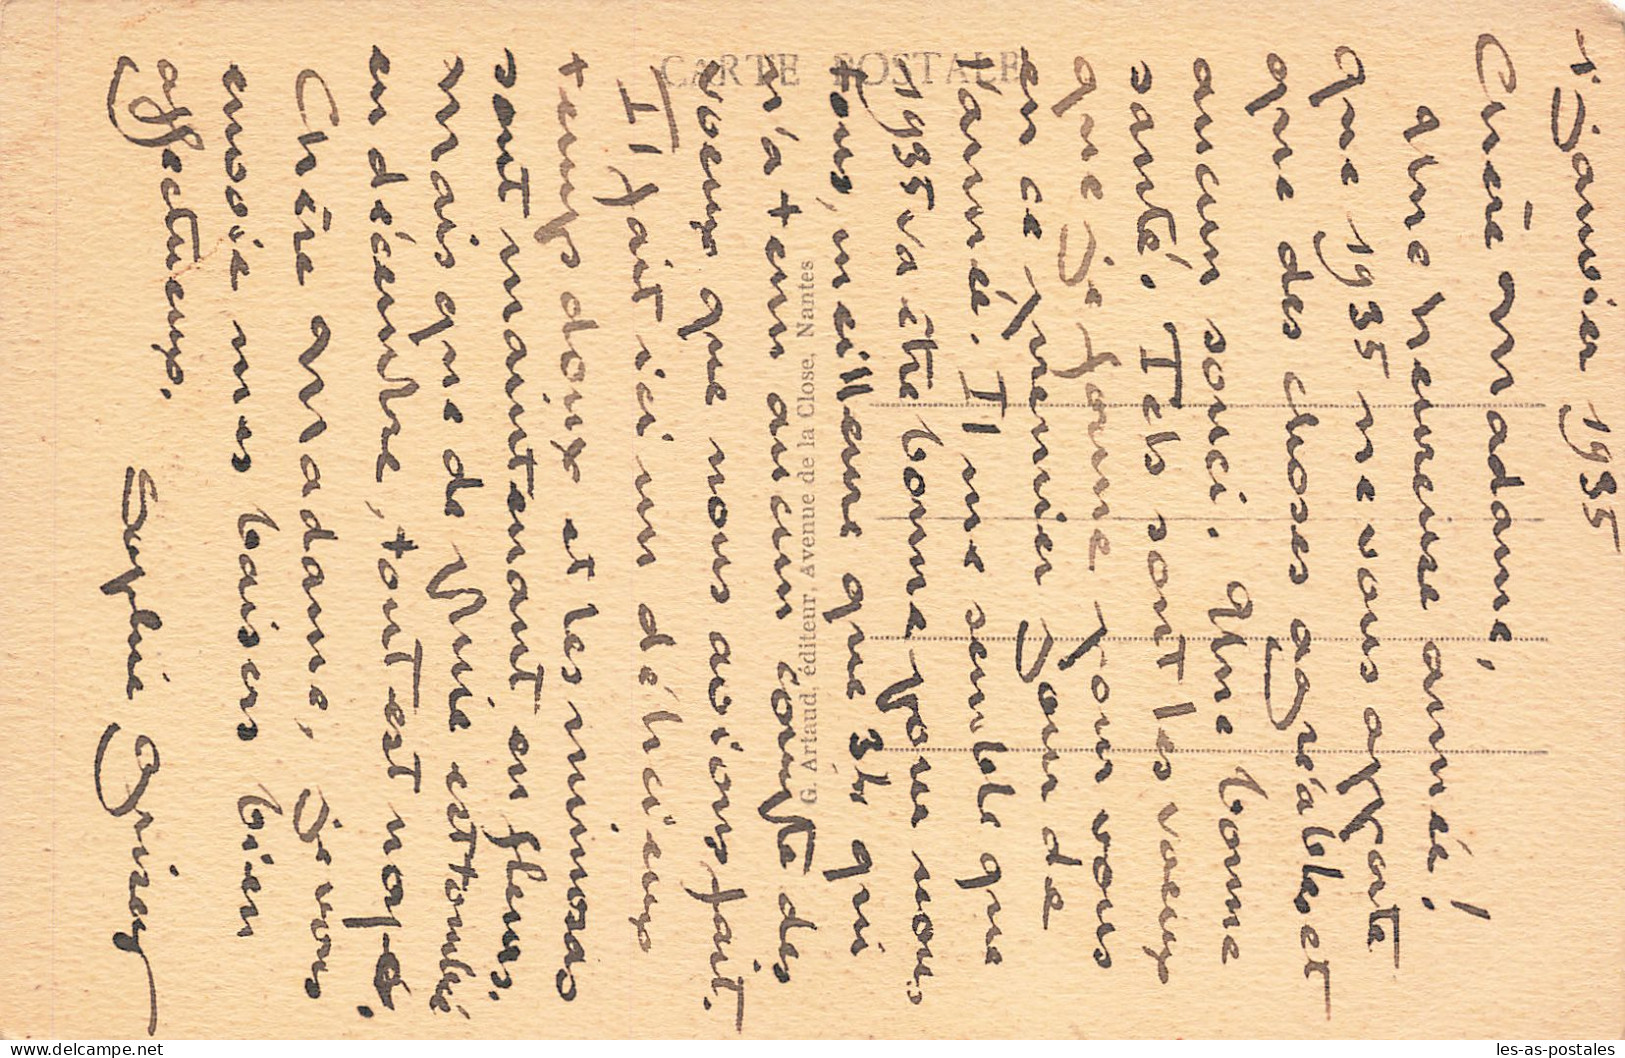 1 janvier 1935
Chère Madame,
Une heureuse année!
que 1935 ne vous apporte
que des choses agréables et
aucun souci. Une bonne
santé. Tels sont les vœux
que je forme pour vous
en ce premier jour de
l'année. Il me semble que
1935 va être bonne pour nous
tous, meilleure que 34 qui
n'a tenu aucun compte des
vœux que nous avions fait.
Il fait ici un délicieux
temps doux et les mimosas
sont maintenant en fleurs.
Mais que de pluie est tombé
en décembre, tout est noyé.
Chère Madame, je vous
envoie mes baisers bien
affectueux.
Sophie
CARTE POSTALE
G. Artaud, éditeur, Avenue de la Close, Nantes
les-as-postales
www.delcampe.net